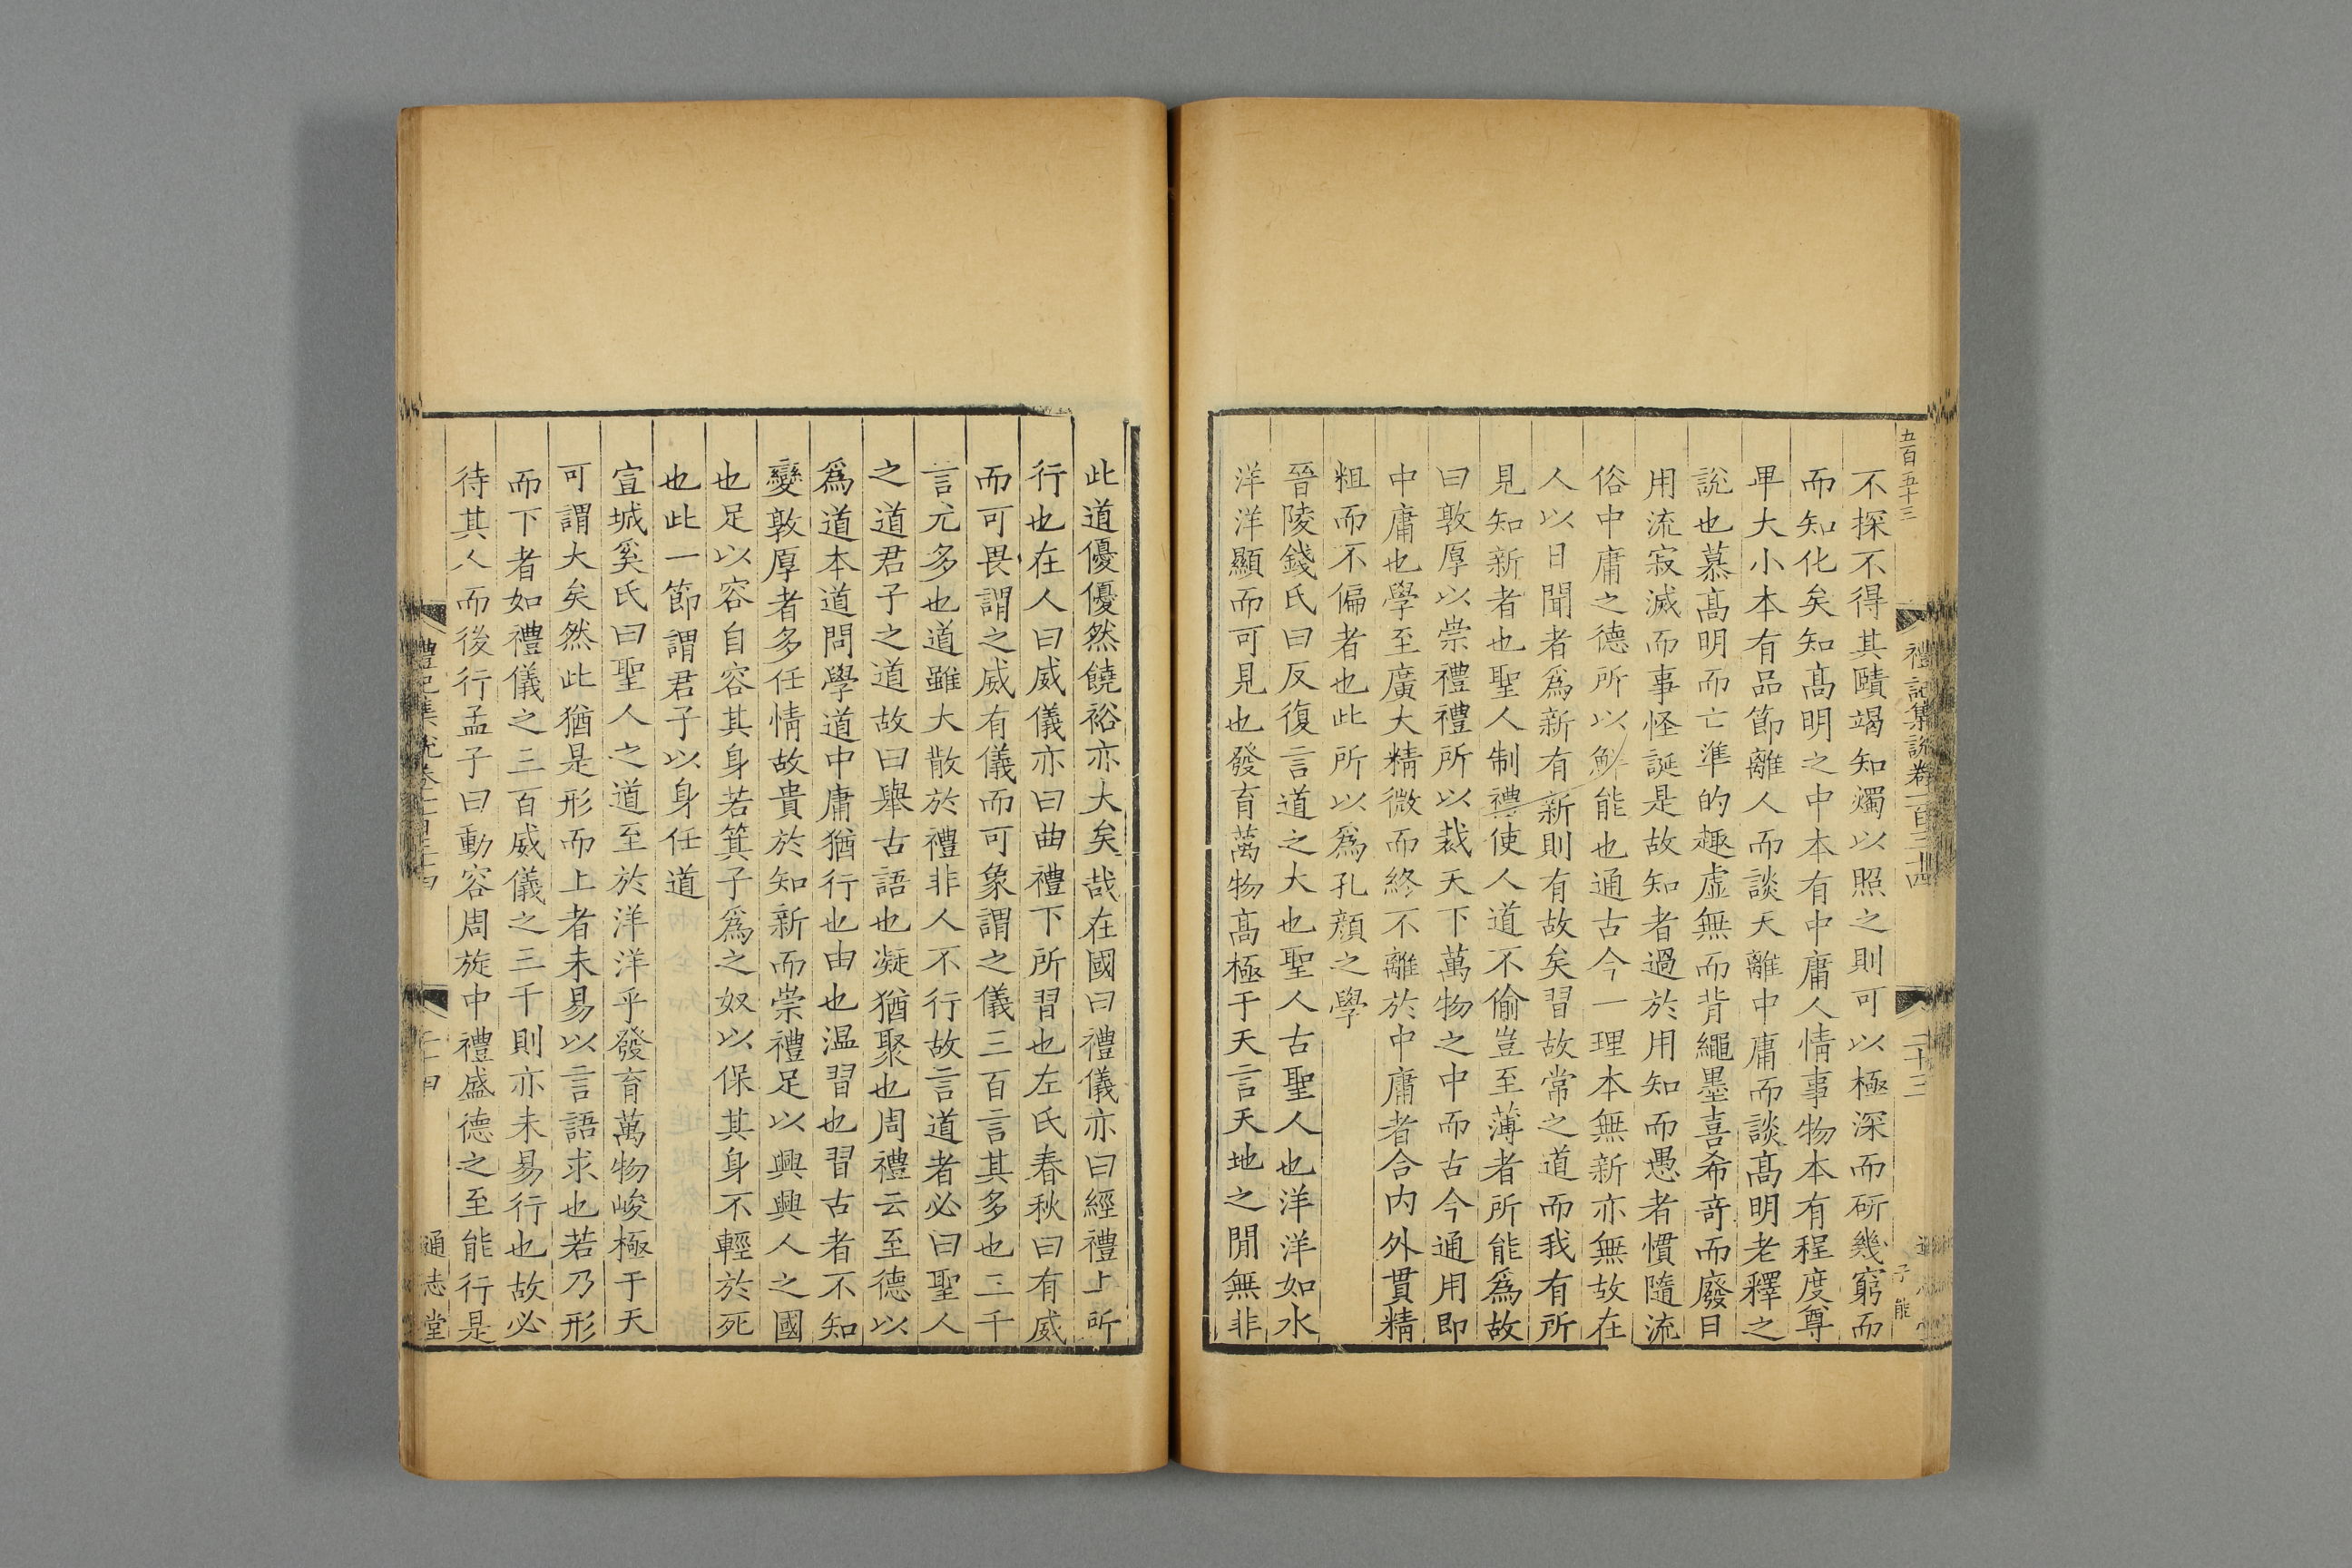 五百五十三
禮記集說卷一百三十四
二十三
子能
不探不得其賾竭知燭以照之則可以極深而研幾窮而
而知化矣知髙明之中本有中庸人情事物本有程度尊
卑大小本有品節離人而談天離中庸而談髙明老釋之
說也慕髙明而亡準的趣虛無而背繩墨喜希竒而廢日
用流寂滅而事怪誕是故知者過於用知而愚者慣隨流
俗中庸之德所以鮮能也通古今一理本無新亦無故在
人以日聞者爲新有新則有故矣習故常之道而我有所
見知新者也聖人制禮使人道不偷豈至薄者所能爲故
曰敦厚以崇禮禮所以裁天下萬物之中而古今通用即
中庸也學至廣大精微而終不離於中庸者合内外貫精
粗而不偏者也此所以爲孔顔之學
晉陵錢氏曰反復言道之大也聖人古聖人也洋洋如水
洋洋顯而可見也發育萬物髙極于天言天地之閒無非
此道優優然饒裕亦大矣哉在國曰禮儀亦曰經禮上所
行也在人曰威儀亦曰曲禮下所習也左氏春秋曰有威
而可畏謂之威有儀而可象謂之儀三百言其多也三千
言尤多也道雖大散於禮非人不行故言道者必曰聖人
之道君子之道故曰舉古語也凝猶聚也周禮云至德以
爲道本道問學道中庸猶行也由也温習也習古者不知
變敦厚者多任情故貴於知新而崇禮足以興興人之國
也足以容自容其身若箕子爲之奴以保其身不輕於死
也此一節謂君子以身任道
宣城奚氏曰聖人之道至於洋洋乎發育萬物峻極于天
可謂大矣然此猶是形而上者未易以言語求也若乃形
而下者如禮儀之三百威儀之三千則亦未易行也故必
待其人而後行孟子曰動容周旋中禮盛德之至能行是
通志堂